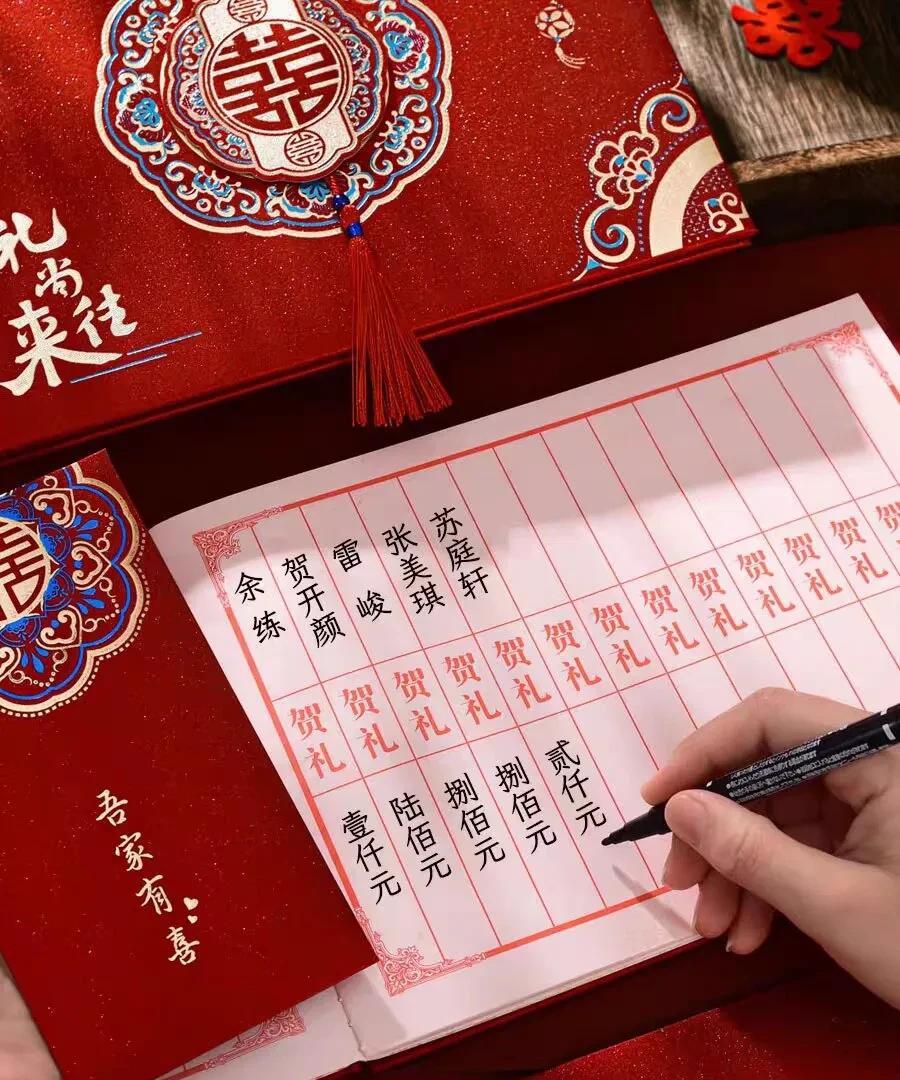 囍
礼尚往来
囍
吾家有喜
余练 贺礼 壹仟元
贺开颜 贺礼 陆佰元
雷峻 贺礼 捌佰元
张美琪 贺礼 捌佰元
苏庭轩 贺礼 贰仟元
贺礼
贺礼
贺礼
贺礼
贺礼
贺礼
贺礼
贺礼